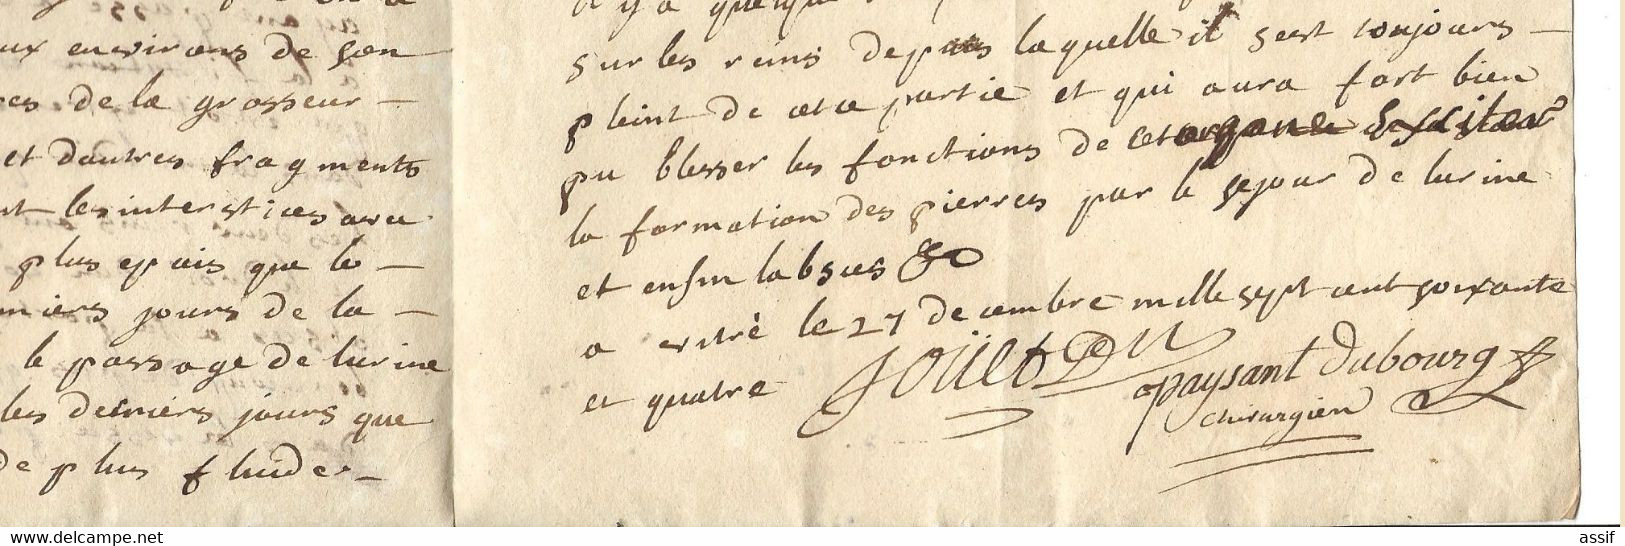 ux environs de son
es de la grosseur –
et dautres fragments
nt les interstices avec
plus epais que le –
miers jours de la –
le passage de lurine
les derniers jours que
de plus fluide –
il y a quelque
sur les reins depuis laquelle il sest toujours –
pleint de cete partie et qui aura fort bien
pu blesser les fonctions de cet organe Exciter
la formation des pierres par le sejour de lurine
et enfin labsces &c
a evitré le 27 decembre mille sept cent soixante
et quatre
paysant dubourg
chirurgien
www.delcampe.net
assif